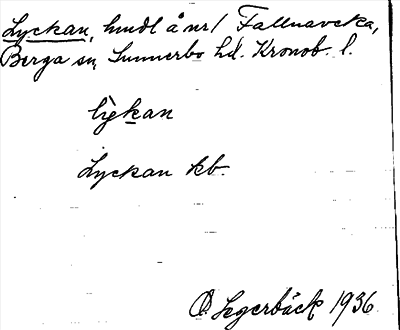 Lyckan, hmdl å nr 1 Fallnaveka,
Berga sn, Sunnerbo hd. Kronob. l.
lỳkan
Lyckan kb.
O. Segerbäck 1936